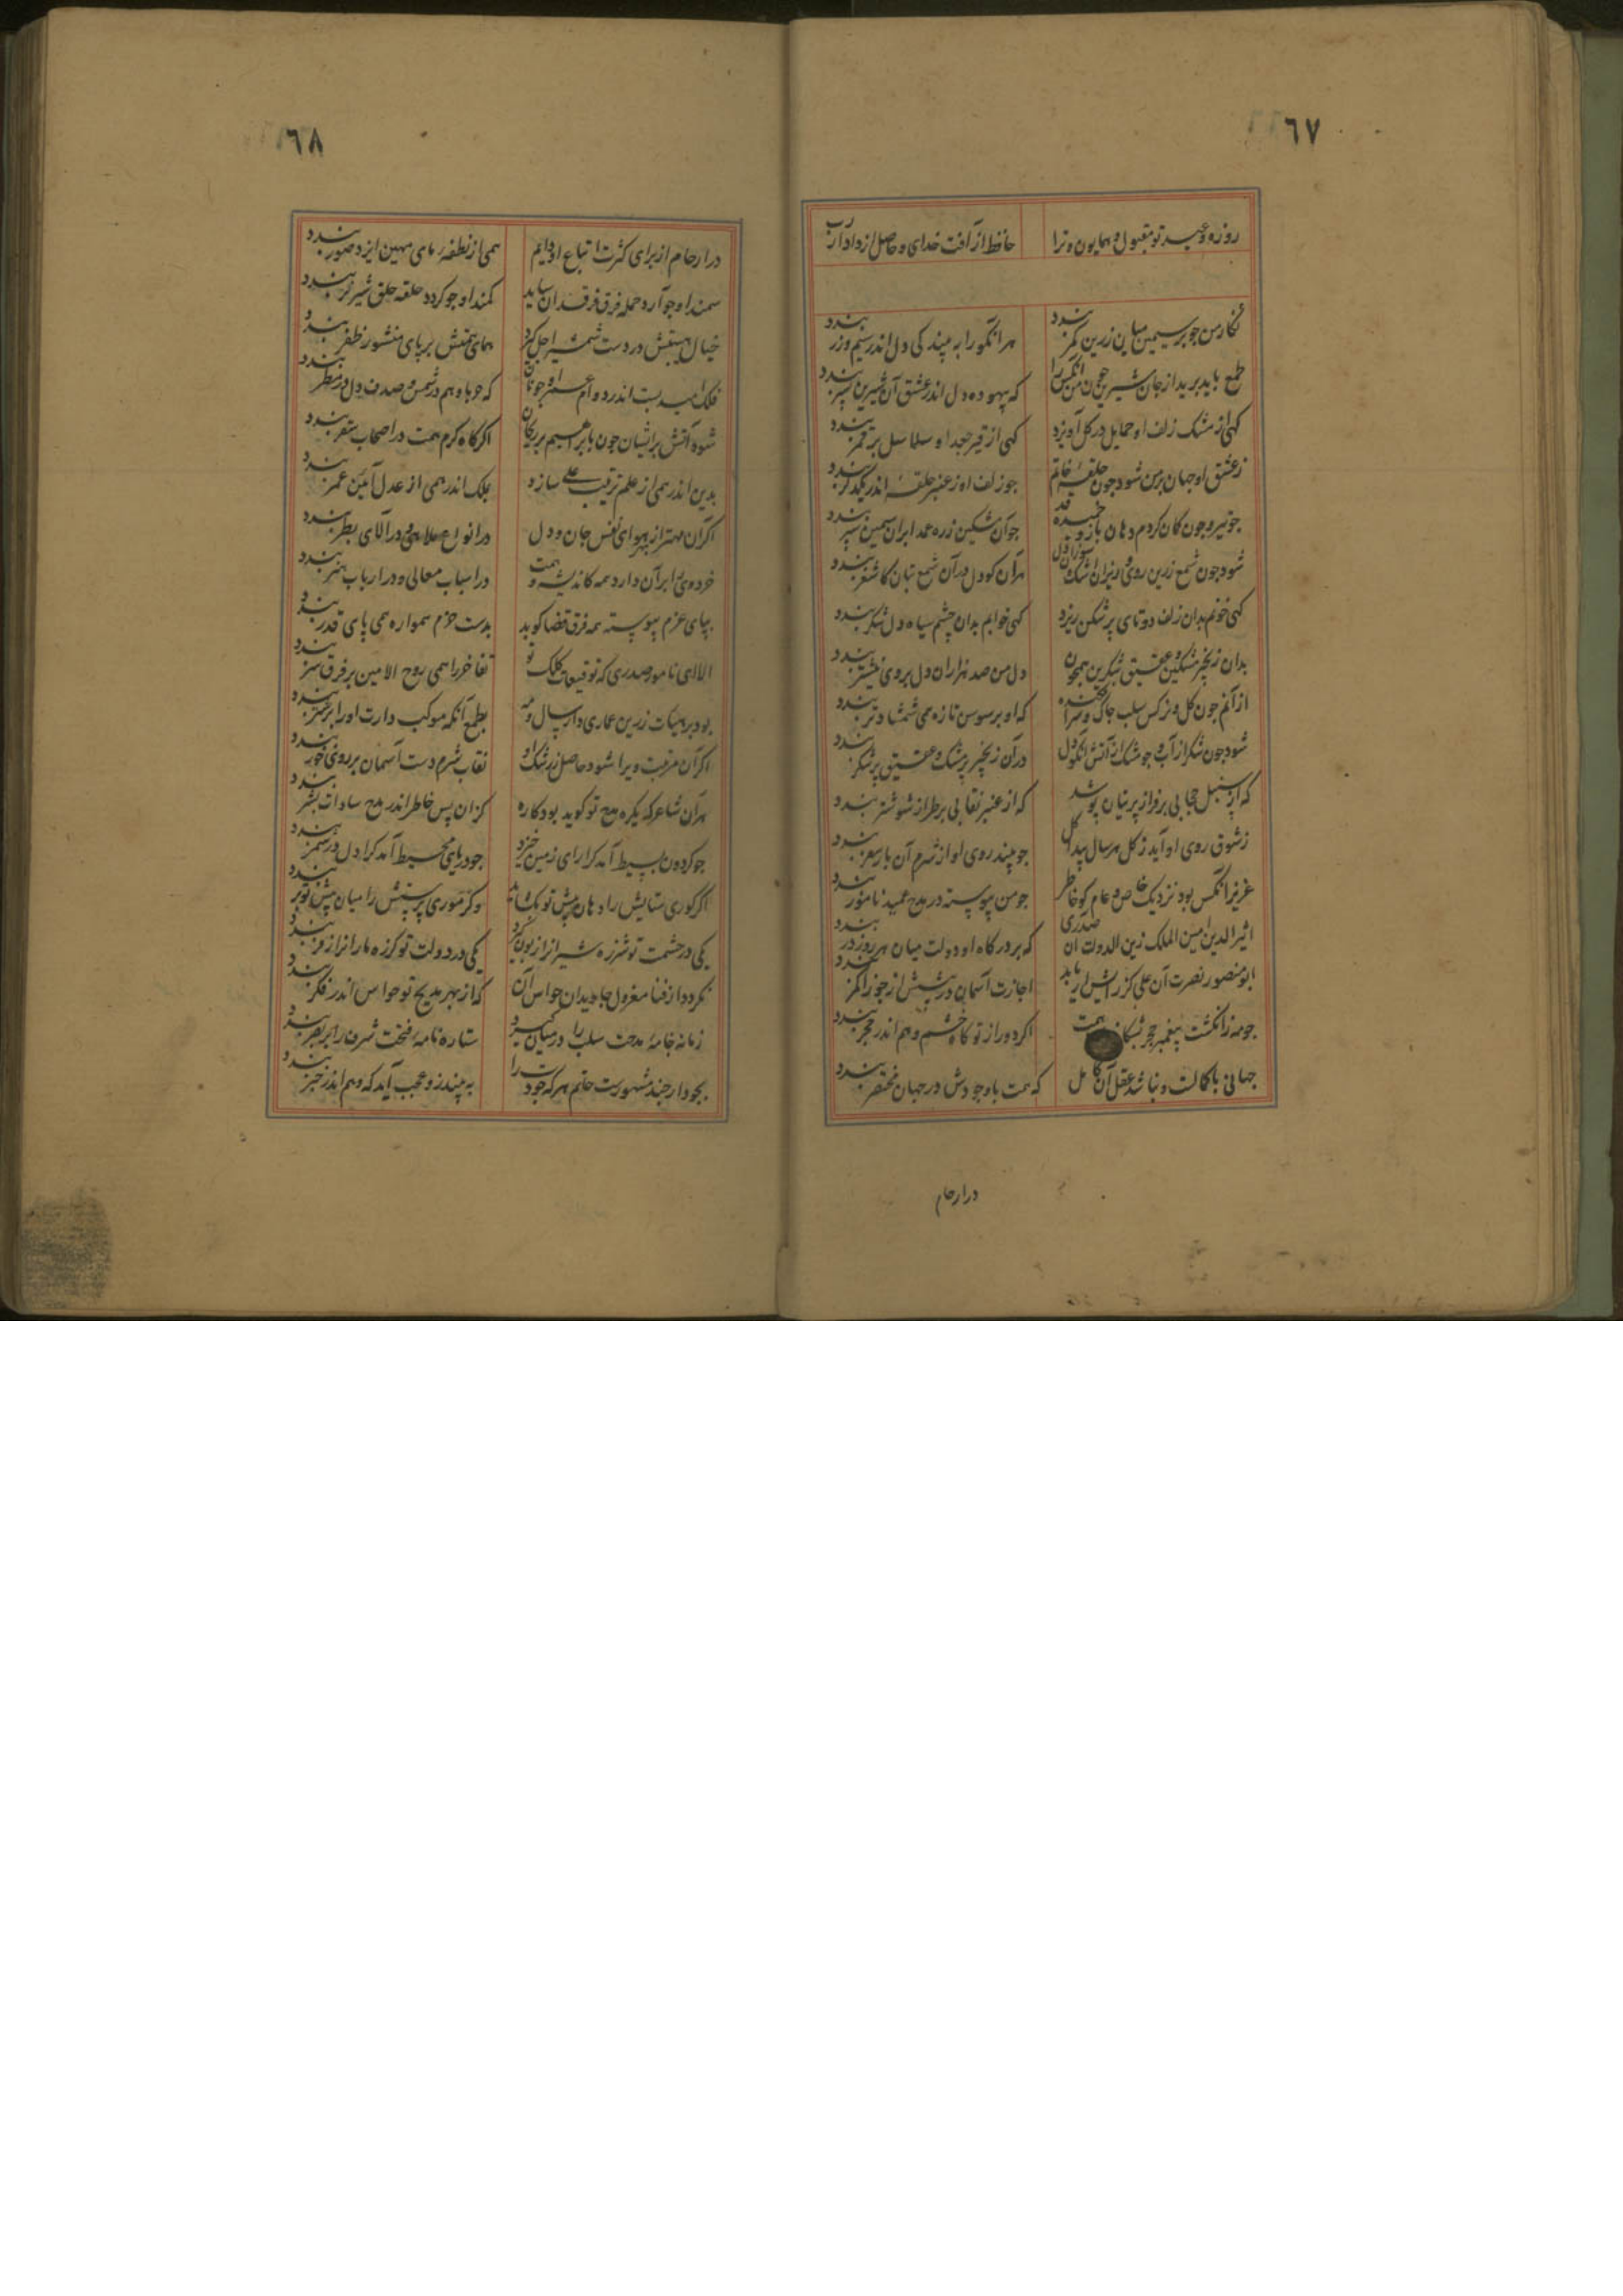 ٦٧
روزه و عید تو مقبول و همایون و ترا حافظ از آفت خدای و حاصل از دادار رب
نکار من جو بر سیمین میان زرین کمر بندد هر انکو را به بیند کی دل اندر سیم و زر بندد
طمع باید برید از جان شیرین جون من انکس را که بیهوده دل اندر عشق آن شیرین پسر بندد
کهی از مشک زلف او حمایل در کل آویزد کهی از قیر جعد او سلاسل بر قمر بندد
ز عشق او جهان بر من شود جون حلقهٔ خاتم جو زلف او ز عنبر حلقه اندر یکدکر بندد
جو تیر و جون کمان کردم دهان باز و خمیده قد جو آن مشکین زره عمدا بران سیمین سپر بندد
شود جون شمع زرین روی و ریزان اشک و سوزان دل هران کو دل در آن شمع بتان کاشغر بندد
کهی خونم بدان زلف دوتای پر شکن ریزد کهی خوابم بدان چشم سیاه دل شکر بندد
بدان زنجیر مشکین و عقیق شکرین همجون دل من صد هزاران دل بروی بیشتر بندد
از آنم جون کل و نرکس سلب جاک و سر افکنده که او بر سوسن تازه همی شمشاد تر بندد
شود جون شکر از آب و جو مشک از آتش آنکو دل در آن زنجیر پر مشک و عقیق پر شکر بندد
که از سنبل حجابی بر فراز پرنیان پوشد که از عنبر نقابی بر طراز شوشتر بندد
ز شوق روی او آید ز کل هر سال پیدا کل جو بیند روی او از شرم آن بار سفر بندد
عزیز انکس بود نزدیک خاص و عام کو خاطر جو من پیوسته در مدح عمید نامور بندد
اثیر الدین امین الملک زین الدولت ان صدری که بر درکاه او دولت میان هر روز در بندد
ابو منصور نصرت آن علی کز راش ار یابد اجازت آسمان در پیشش از جوزا کمر بندد
جو مه ز انکشت پیغمبر حجر بشکافد هیبت اکر دور از تو کاه خشم وهم اندر حجر بندد
جهانی با کمالست و نباشد عقل آن کامل که همت با وجودش در جهان مختصر بندد
در ارحام
٦٨
در ارحام از برای کثرت اتباع او دایم همی از نطفهٔ مای مهین ایزد صور بندد
سمند او جو آرد حمله فرق فرقدان ساید کمند او جو کردد حلقه حلق شیر نر بندد
خیال هیبتش در دست شمشیر اجل کیرد همای همتش بر پای منشور ظفر بندد
شود آتش بر ایشان جون بابراهیم بر ریحان اکر کاه کرم همت در اصحاب سقر بندد
بدین اندر همی از علم ترتیب علی سازد بملک اندر همی از عدل آئین عمر بندد
اکر آن مهتر از بهر هوای نفس جان و دل در انواع ملاهی و در آلای بطر بندد
خرد وی را بر آن دارد همه کاندیشه و همت در اسباب معالی و در ارباب هنر بندد
بپای عزم پیوسته همه فرق قضا کوبد بدست حزم همواره همی پای قدر بندد
الا ای نامور صدری که توقیعات کلک تو تفاخر را همی روح الامین بر فرق سر بندد
بود بر هیات زرین عماری دار سال و مه بطمع آنکه موکب دارت او را بر ستر بندد
اکر آن مرتبت ویرا شود حاصل ز رشک او نقاب شرم دست آسمان بر روی خور بندد
هر آن شاعر که یکره مدح تو کوید بود کاره کزان پس خاطر اندر مدح سادات بشر بندد
جو کردون بسیط آمد کرا رای زمین خیزد جو دریای محیط آمد کرا دل در شمر بندد
یکی در حشمت تو شرزه شیر از ارزبون کیرد یکی در دولت تو کرزه مار از از فر بندد
نکردد از فنا معزول جاویدان حواس آن که از بهر مدیح تو حواس اندر فکر بندد
زمانه خامهٔ مدحت سلب را در میان کیرد ستاره نامهٔ فتحت شرف را بر بصر بندد
بجود ار جند مشهورست حاتم هر که جودت را به بیند زو عجب آید که وهم اندر خبر بندد